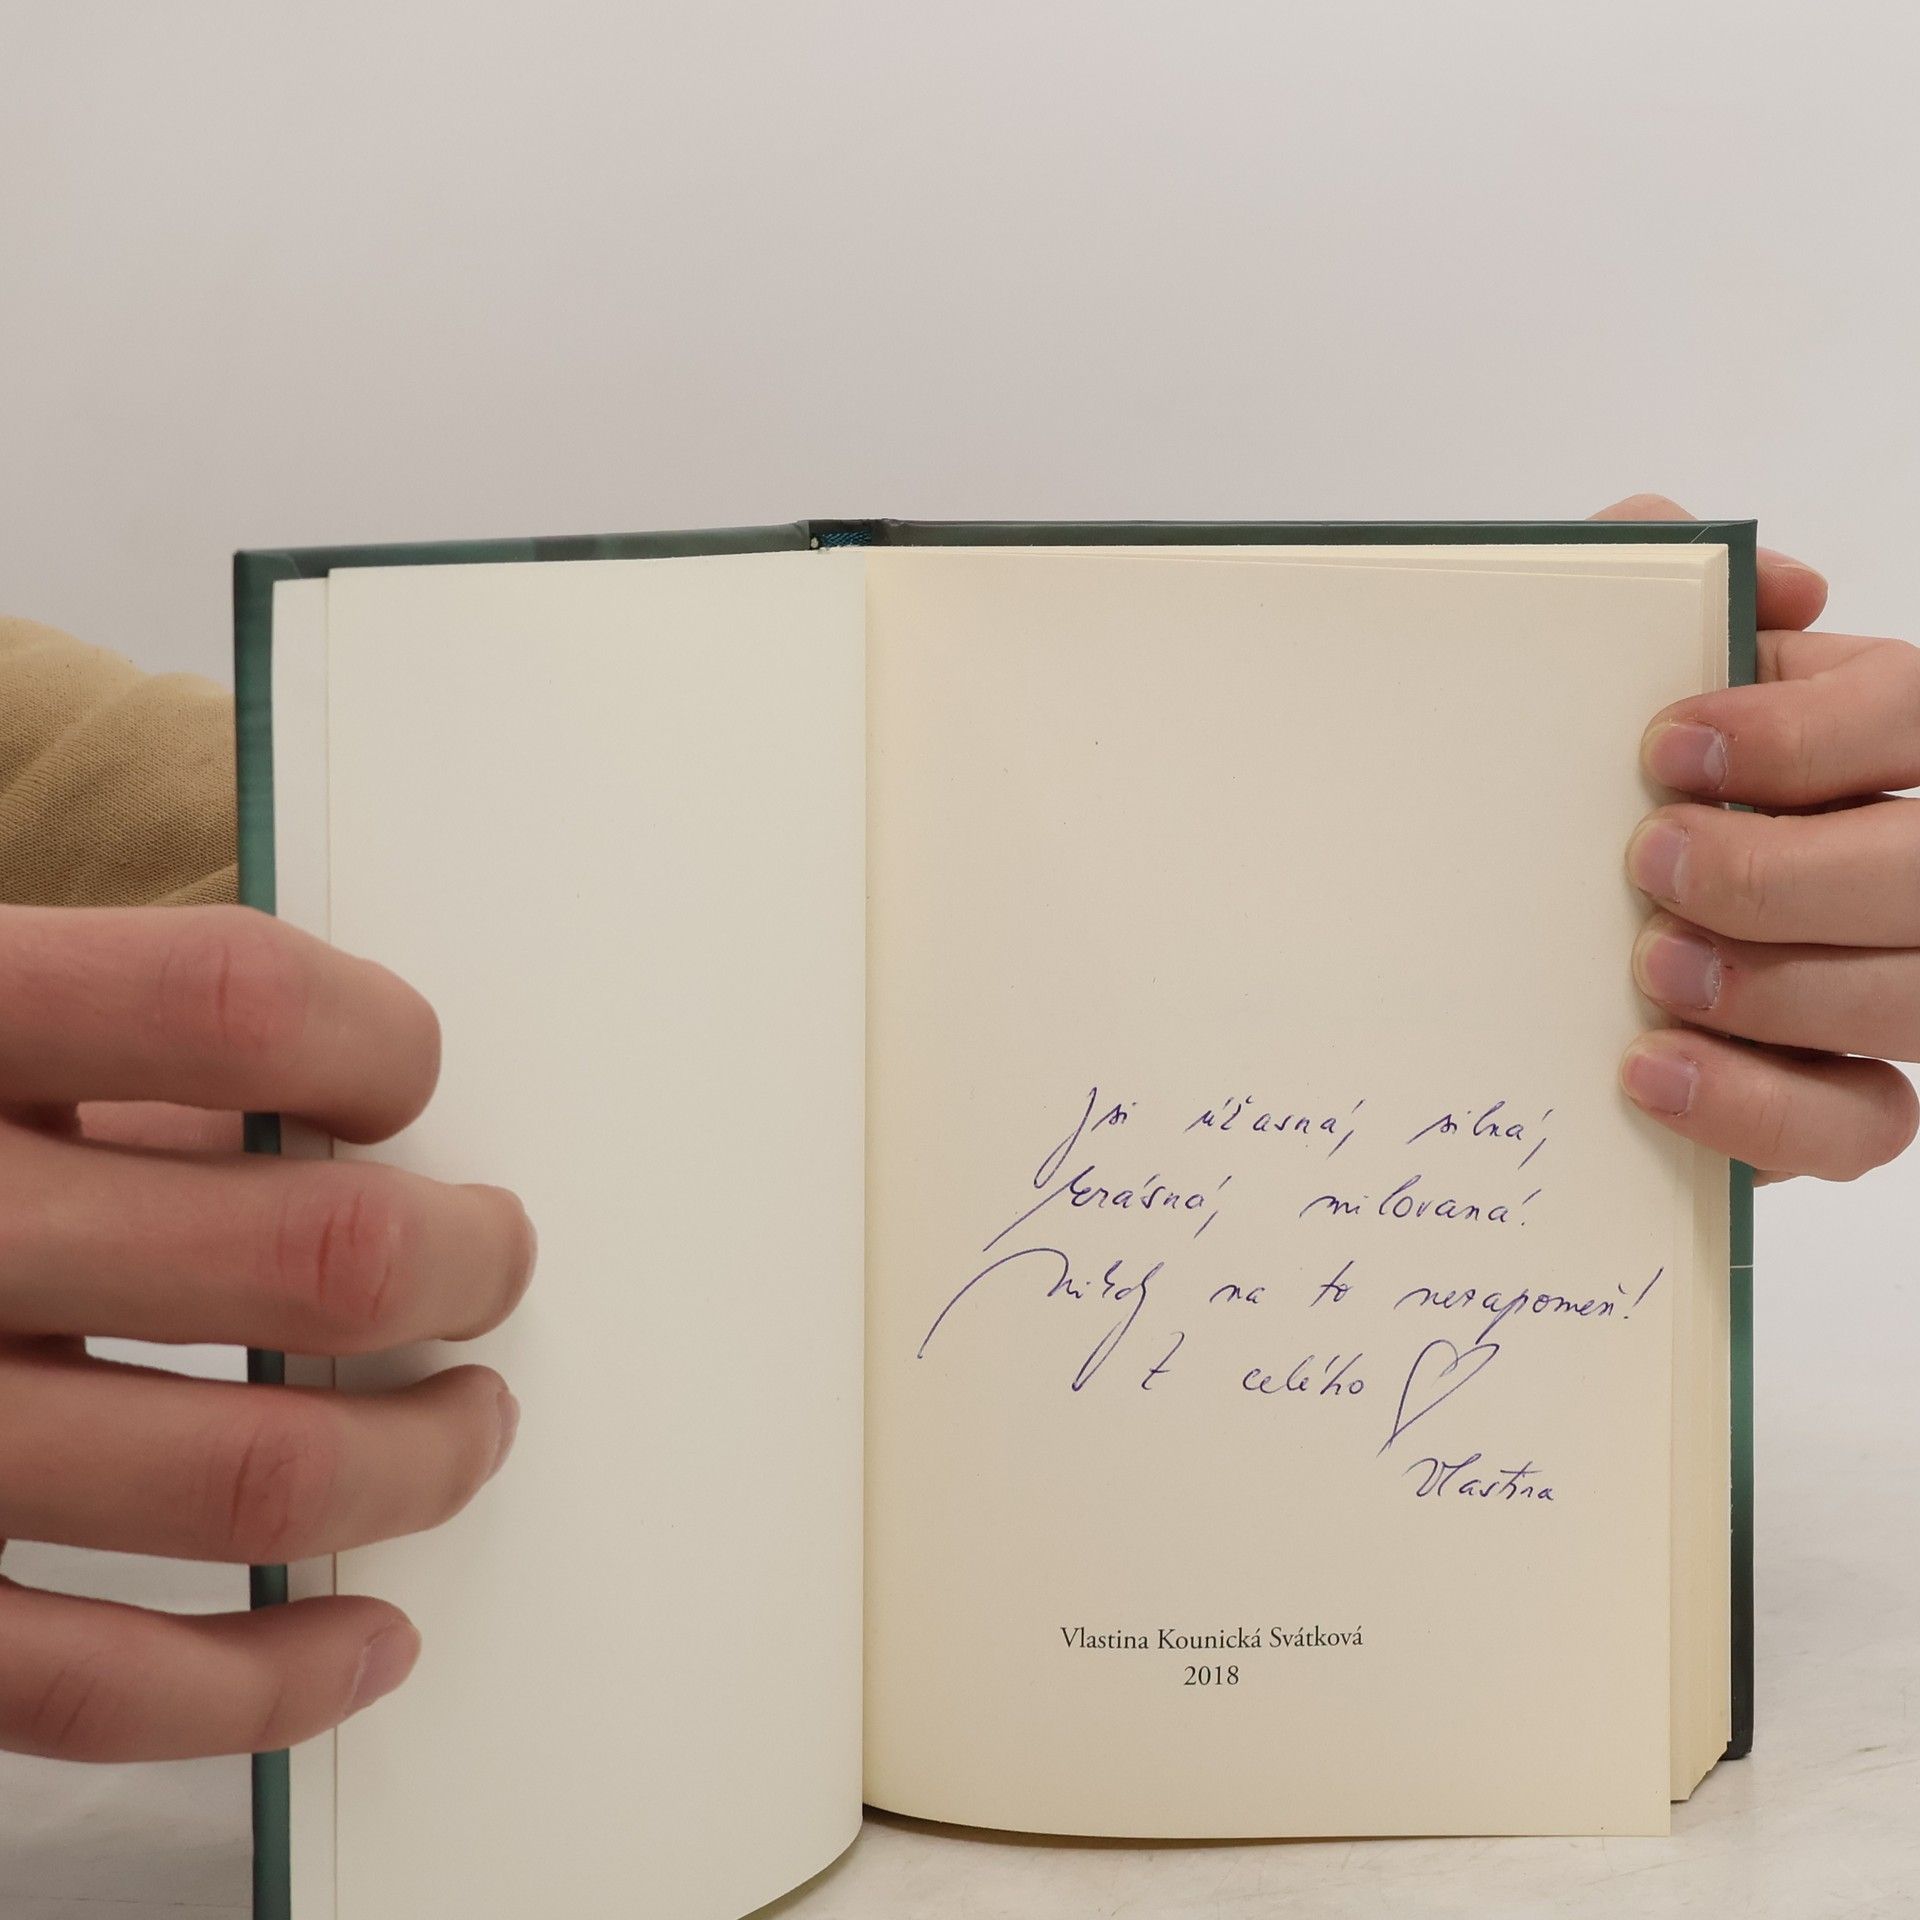 Jsi úžasná, silná,
krásná, milovaná!
Nikdy na to nezapomeň!
Z celého ♡
Vlastina
Vlastina Kounická Svátková
2018